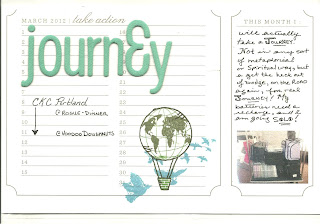 MARCH 2012 : take action
THIS MONTH I :
journey
CKC Portland
@ ROGUE - DINNER
@ VOODOO DOUGHNUTS
will actually
take a JOURNEY!
Not in any sort
of metaphorical
or Spiritual way, but
a get the heck out
of Dodge, on the ROAD
again, for real
JOURNEY! My
batteries need a
recharge, and I
am going SOLO!